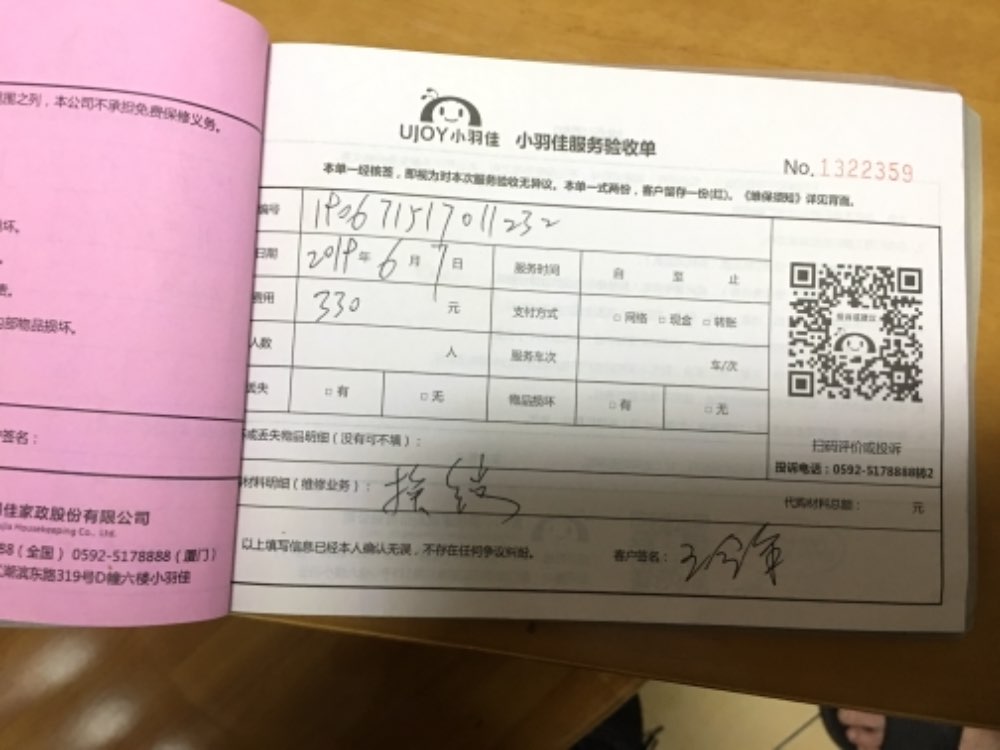 围之列，本公司不承担免费保修义务。
坏。
部物品损坏。
签名：
佳家政股份有限公司
jia Housekeeping Co., Ltd.
88（全国） 0592-5178888（厦门）
湖滨东路319号D幢六楼小羽佳
UJOY小羽佳 小羽佳服务验收单
No. 1322359
本单一经核签，即视为对本次服务验收无异议。本单一式两份，客户留存一份(红)。《维保须知》详见背面。
编号 190671517011232
日期 2019年6月7日 服务时间 自 至 止
费用 330 元 支付方式 □网络 □现金 □转账
人数 人 服务车次 车/次
丢失 □有 □无 物品损坏 □有 □无
投诉或建议
扫码评价或投诉
投诉电话：0592-5178888转2
或丢失物品明细（没有可不填）：
材料明细（维修业务）： 换锁 代购材料总额： 元
以上填写信息已经本人确认无误，不存在任何争议纠纷。 客户签名：